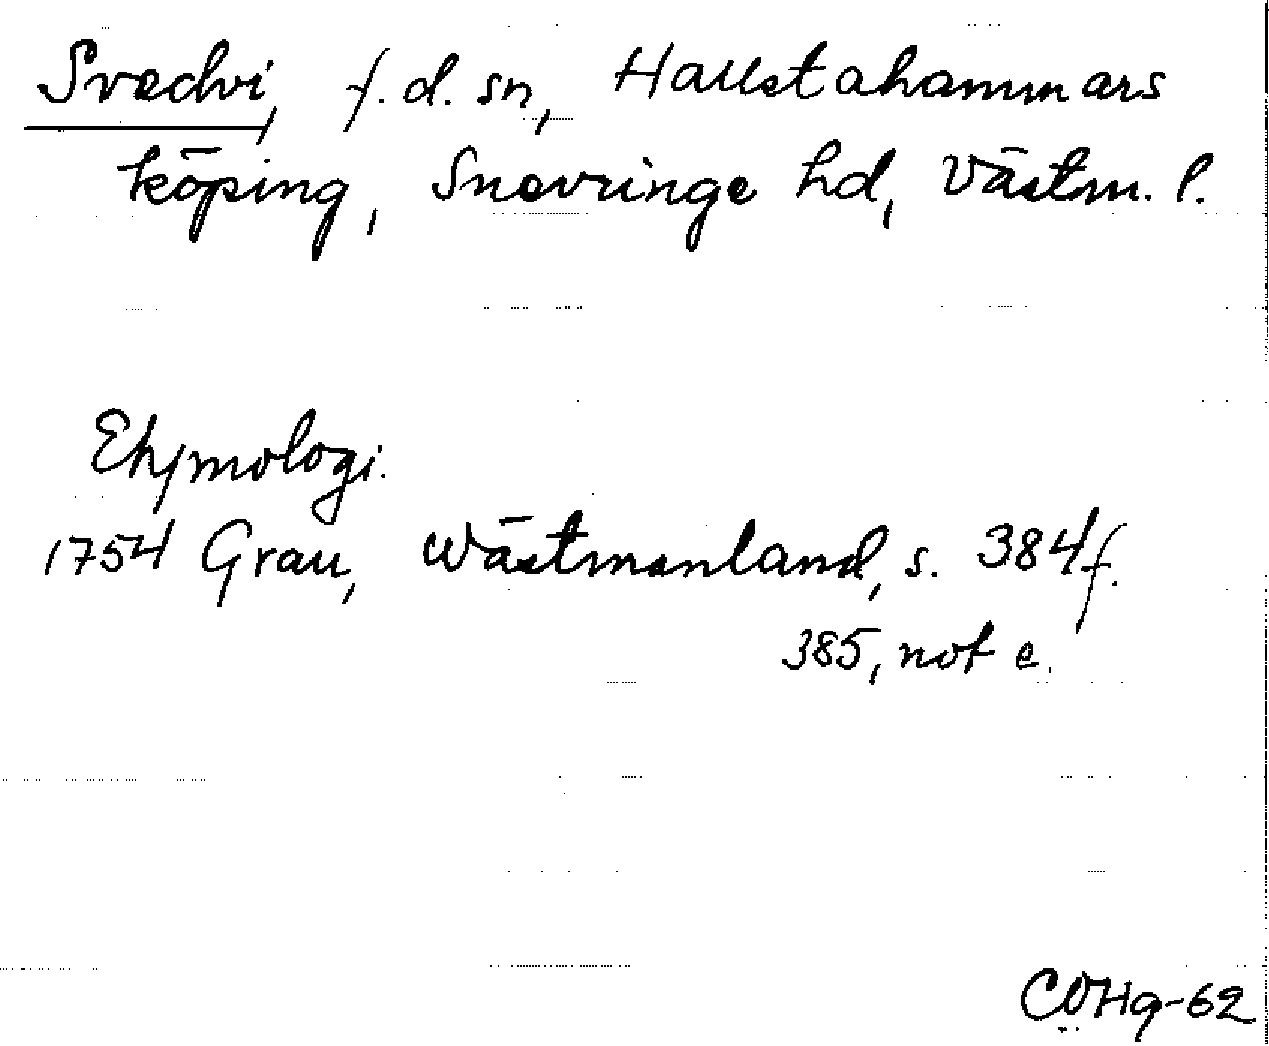 Svedvi, f.d. sn, Hallstahammars
köping, Snevringe hd, Västm. l.
Etymologi.
1754 Grau, Wästmanland, s. 384f.
385, not e.
COHg-62